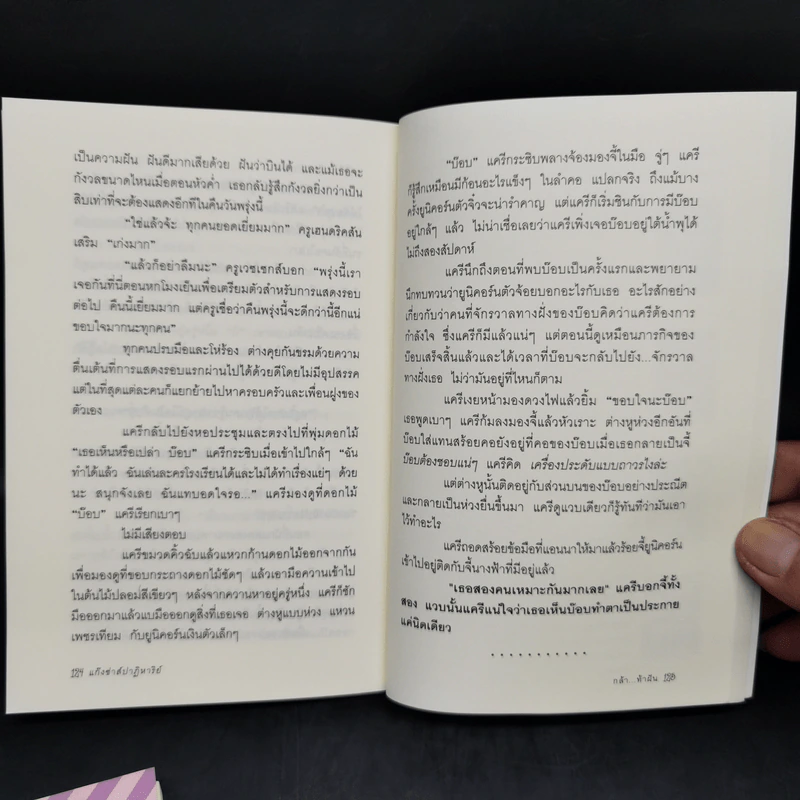 เป็นความฝัน ฝันดีมากเสียด้วย ฝันว่าบินได้ และแม้เธอจะ
กังวลขนาดไหนเมื่อตอนหัวค่ำ เธอกลับรู้สึกกังวลยิ่งกว่าเป็น
สิบเท่าที่จะต้องแสดงอีกทีในคืนวันพรุ่งนี้
"ใช่แล้วจ้ะ ทุกคนยอดเยี่ยมมาก" ครูเฮนดริคสัน
เสริม "เก่งมาก"
"แล้วก็อย่าลืมนะ" ครูเวซเซกส์บอก "พรุ่งนี้เรา
เจอกันที่นี่ตอนหกโมงเย็นเพื่อเตรียมตัวสำหรับการแสดงรอบ
ต่อไป คืนนี้เยี่ยมมาก แต่ครูเชื่อว่าคืนพรุ่งนี้จะดีกว่านี้อีกแน่
ขอบใจมากนะทุกคน"
ทุกคนปรบมือและโห่ร้อง ต่างคุยกันขรมด้วยความ
ตื่นเต้นที่การแสดงรอบแรกผ่านไปได้ด้วยดีโดยไม่มีอุปสรรค
แต่ในที่สุดแต่ละคนก็แยกย้ายไปหาครอบครัวและเพื่อนฝูงของ
ตัวเอง
แครีกลับไปยังหอประชุมและตรงไปที่พุ่มดอกไม้
"เธอเห็นหรือเปล่า บ๊อบ" แครีกระซิบเมื่อเข้าไปใกล้ๆ "ฉัน
ทำได้แล้ว ฉันเล่นละครโรงเรียนได้และไม่ได้ทำเรื่องแย่ๆ ด้วย
นะ สนุกจังเลย ฉันแทบอดใจรอ..." แครีมองดูที่ดอกไม้
"บ๊อบ" แครีเรียกเบาๆ
ไม่มีเสียงตอบ
แครีขมวดคิ้วฉับแล้วแหวกก้านดอกไม้ออกจากกัน
เพื่อมองดูที่ขอบกระถางดอกไม้ชัดๆ แล้วเอามือควานเข้าไป
ในต้นไม้ปลอมสีเขียวๆ หลังจากควานหาอยู่ครู่หนึ่ง แครีก็ชัก
มือออกมาแล้วแบมือออกดูสิ่งที่เธอเจอ ต่างหูแบบห่วง แหวน
เพชรเทียม กับยูนิคอร์นเงินตัวเล็กๆ
184 แก๊งซ่าส์ปาฏิหาริย์
"บ๊อบ" แครีกระซิบพลางจ้องมองจี้ในมือ จู่ๆ แครี
ก็รู้สึกเหมือนมีก้อนอะไรแข็งๆ ในลำคอ แปลกจริง ถึงแม้บาง
ครั้งยูนิคอร์นตัวจิ๋วจะน่ารำคาญ แต่แครีก็เริ่มชินกับการมีบ๊อบ
อยู่ใกล้ๆ แล้ว ไม่น่าเชื่อเลยว่าแครีเพิ่งเจอบ๊อบอยู่ใต้น้ำพุได้
ไม่ถึงสองสัปดาห์
แครีนึกถึงตอนที่พบบ๊อบเป็นครั้งแรกและพยายาม
นึกทบทวนว่ายูนิคอร์นตัวจ้อยบอกอะไรกับเธอ อะไรสักอย่าง
เกี่ยวกับว่าคนที่จักรวาลทางฝั่งของบ๊อบคิดว่าแครีต้องการ
กำลังใจ ซึ่งแครีก็มีแล้วแน่ๆ แต่ตอนนี้ดูเหมือนภารกิจของ
บ๊อบเสร็จสิ้นแล้วและได้เวลาที่บ๊อบจะกลับไปยัง...จักรวาล
ทางฝั่งเธอ ไม่ว่ามันอยู่ที่ไหนก็ตาม
แครีเงยหน้ามองดวงไฟแล้วยิ้ม "ขอบใจนะบ๊อบ"
เธอพูดเบาๆ แครีก้มลงมองจี้แล้วหัวเราะ ต่างหูห่วงอีกอันที่
บ๊อบใส่แทนสร้อยคอยังอยู่ที่คอของบ๊อบเมื่อเธอกลายเป็นจี้
บ๊อบต้องชอบแน่ๆ แครีคิด เครื่องประดับแบบถาวรไงล่ะ
แต่ต่างหูนั้นติดอยู่กับส่วนบนของบ๊อบอย่างประณีต
และกลายเป็นห่วงยื่นขึ้นมา แครีดูแวบเดียวก็รู้ทันทีว่ามันเอา
ไว้ทำอะไร
แครีถอดสร้อยข้อมือที่แอนนาให้มาแล้วร้อยจี้ยูนิคอร์น
เข้าไปอยู่ติดกับจี้นางฟ้าที่มีอยู่แล้ว
"เธอสองคนเหมาะกันมากเลย" แครีบอกจี้ทั้ง
สอง แวบนั้นแครีแน่ใจว่าเธอเห็นบ๊อบทำตาเป็นประกาย
แค่นิดเดียว
. . . . . . . . . . .
กล้า...ท้าฝัน 185